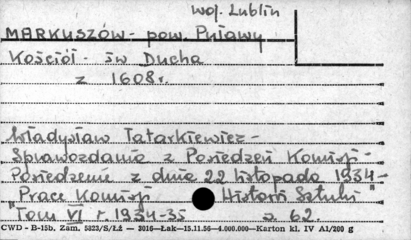 woj. Lublin
MARKUSZÓW - pow. Puławy
Kościół - św Ducha
z 1608 r.
Władysław Tatarkiewicz -
Sprawozdanie z Posiedzeń Komisji -
Posiedzenie z dnia 22 listopada 1934 -
"Prace Komisji Historii Sztuki"
"Tom VI r. 1934-35 s. 62.
CWD - B-15b, Zam. 5823/S/Łż — 3016—Łak—15.11.56—4.000.000—Karton kl. IV A1/200 g